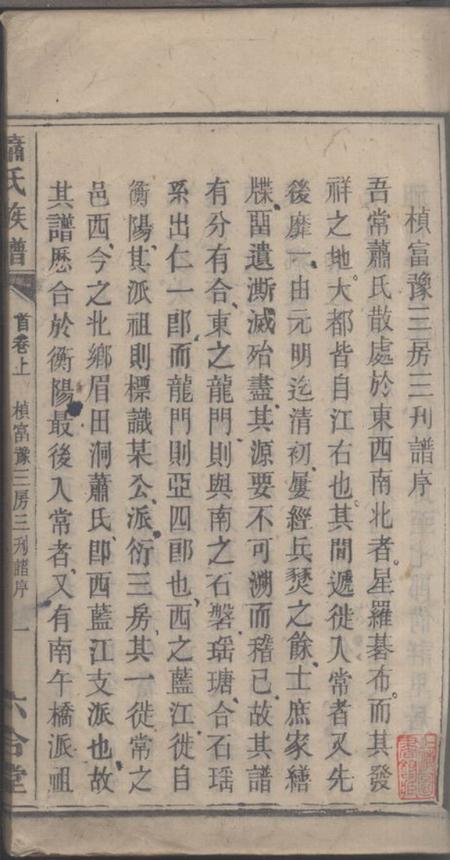 楨富豫三房三刊譜序
吾常蕭氏散處於東西南北者星羅碁布而其發
祥之地大都皆自江右也其間遞徙入常者又先
後靡一由元明迄清初屢經兵燹之餘士庶家繕
牒畱遺澌滅殆盡其源要不可溯而稽已故其譜
有分有合東之龍門則與南之石磐瑤瑭合石瑤
系出仁一郎而龍門則亞四郎也西之藍江徙自
衡陽其派祖則標識某公派衍三房其一徙常之
邑西今之北鄉眉田洞蕭氏卽西藍江支派也故
其譜歷合於衡陽最後入常者又有南午橋派祖
蕭氏族譜
首卷上
楨富豫三房三刊譜序
一
六合堂